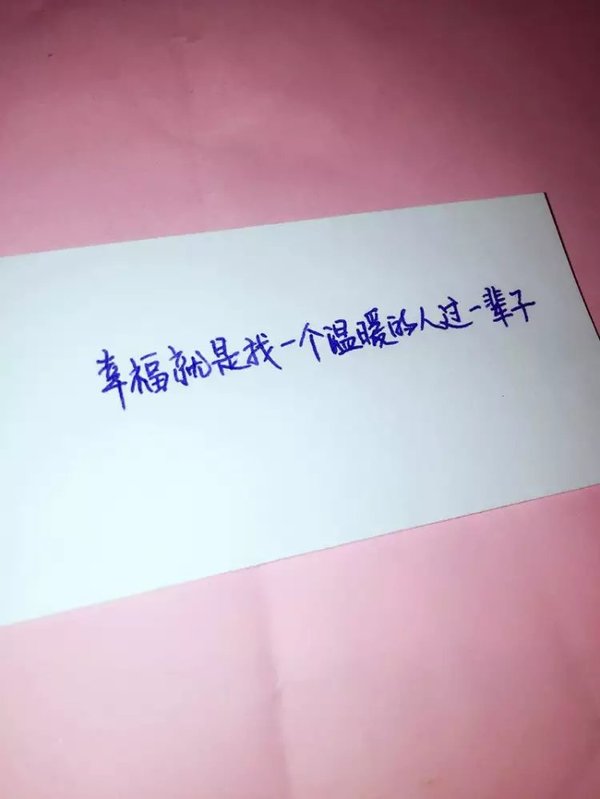 幸福就是找一个温暖的人过一辈子